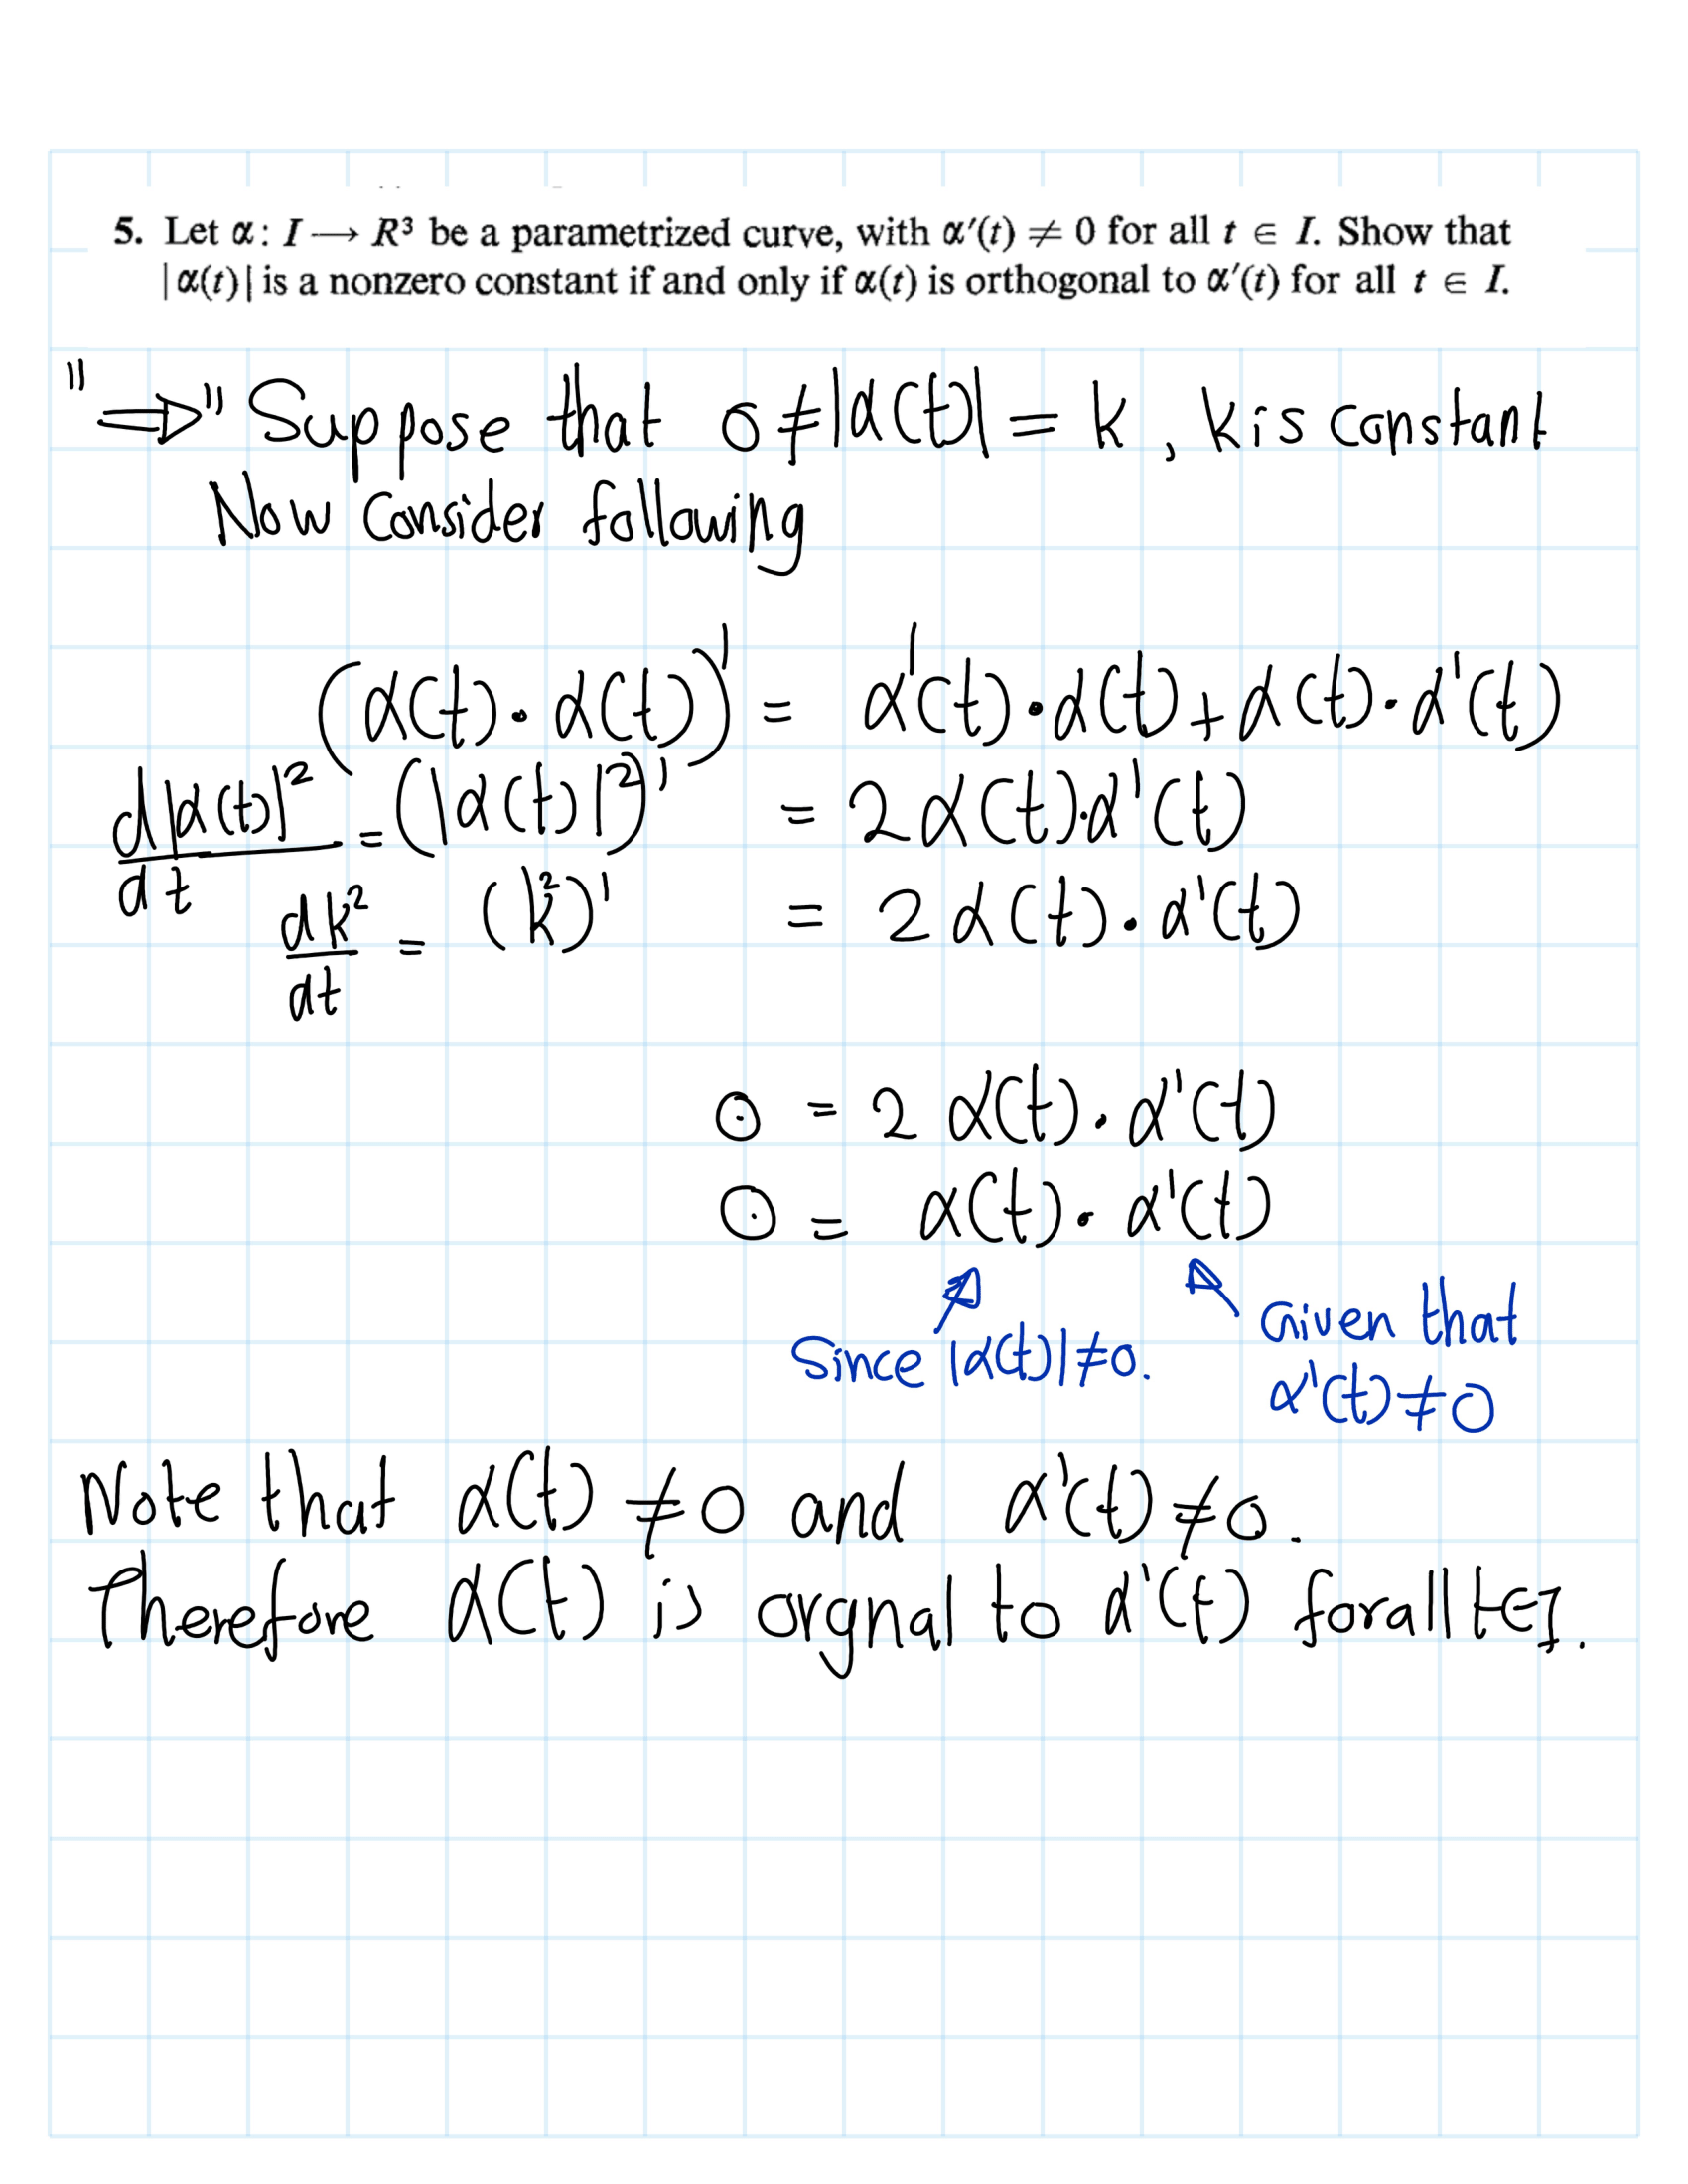 5. Let α: I → R³ be a parametrized curve, with α′(t) ≠ 0 for all t ∈ I. Show that
|α(t)| is a nonzero constant if and only if α(t) is orthogonal to α′(t) for all t ∈ I.
"⇒" Suppose that 0 ≠ |α(t)| = k, k is constant
Now Consider following
(α(t) · α(t))' = α'(t) · α(t) + α(t) · α'(t)
d|α(t)|²/dt = (|α(t)|²)' = 2 α(t) · α'(t)
dk²/dt = (k²)' = 2 α(t) · α'(t)
0 = 2 α(t) · α'(t)
0 = α(t) · α'(t)
Since |α(t)| ≠ 0.
Given that
α'(t) ≠ 0
Note that α(t) ≠ 0 and α'(t) ≠ 0.
Therefore α(t) is orgnal to α'(t) for all t ∈ I.